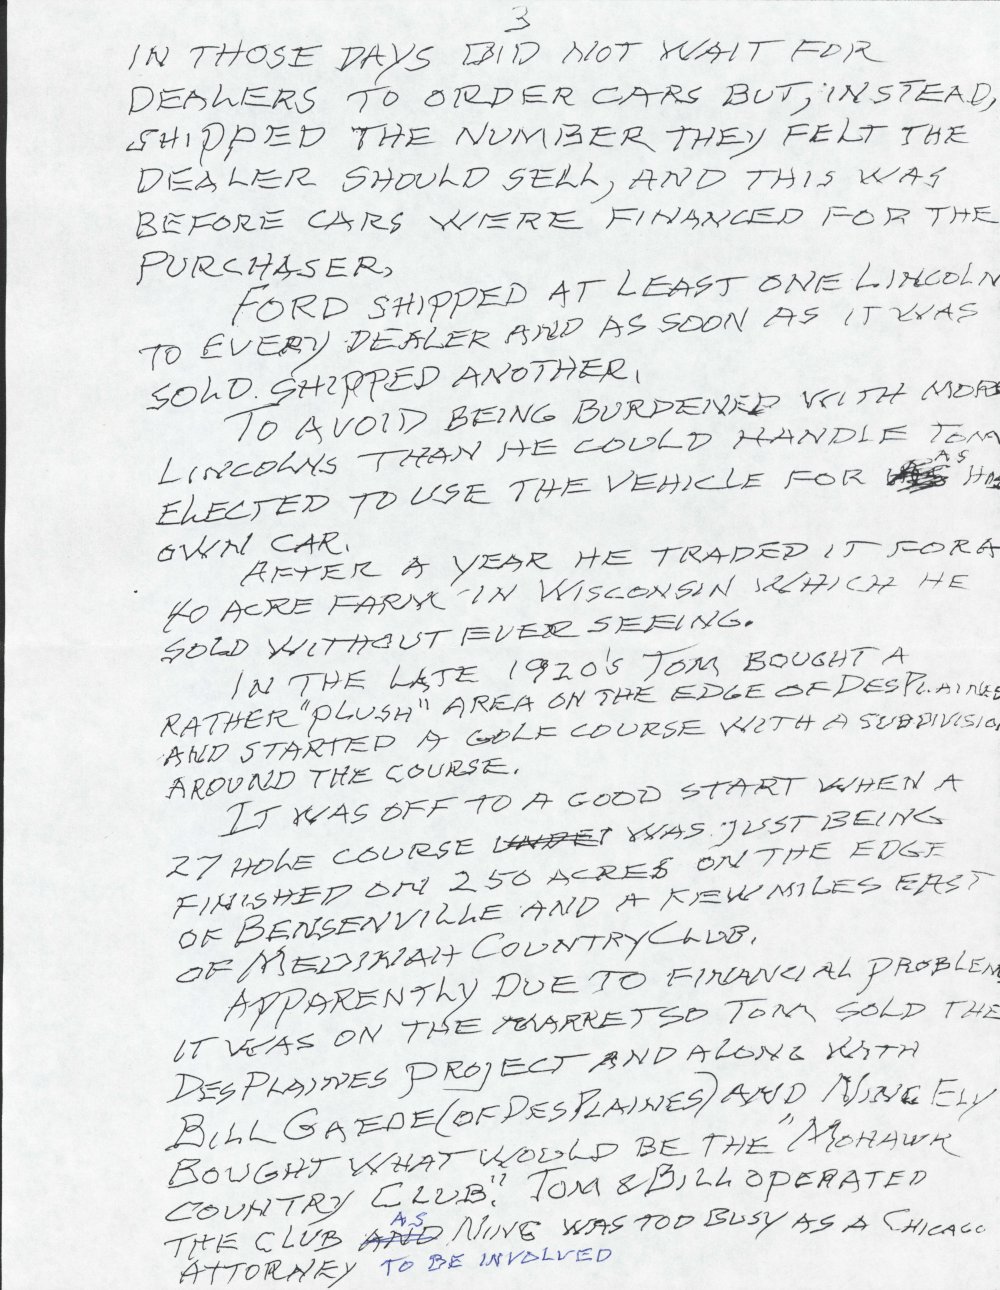 3
IN THOSE DAYS DID NOT WAIT FOR
DEALERS TO ORDER CARS BUT, INSTEAD,
SHIPPED THE NUMBER THEY FELT THE
DEALER SHOULD SELL, AND THIS WAS
BEFORE CARS WERE FINANCED FOR THE
PURCHASER.
FORD SHIPPED AT LEAST ONE LINCOLN
TO EVERY DEALER AND AS SOON AS IT WAS
SOLD. SHIPPED ANOTHER.
TO AVOID BEING BURDENED WITH MORE
LINCOLNS THAN HE COULD HANDLE TOM
ELECTED TO USE THE VEHICLE FOR AS HIS
OWN CAR.
AFTER A YEAR HE TRADED IT FOR A
40 ACRE FARM IN WISCONSIN WHICH HE
SOLD WITHOUT EVER SEEING.
IN THE LATE 1920'S TOM BOUGHT A
RATHER "PLUSH" AREA ON THE EDGE OF DESPLAINES
AND STARTED A GOLF COURSE WITH A SUBDIVISION
AROUND THE COURSE.
IT WAS OFF TO A GOOD START WHEN A
27 HOLE COURSE WAS JUST BEING
FINISHED ON 250 ACRES ON THE EDGE
OF BENSENVILLE AND A FEW MILES EAST
OF MEDINAH COUNTRY CLUB.
APPARENTLY DUE TO FINANCIAL PROBLEM
IT WAS ON THE MARKET SO TOM SOLD THE
DESPLAINES PROJECT AND ALONG WITH
BILL GAEDE (OF DESPLAINES) AND NINE ELY
BOUGHT WHAT WOULD BE THE "MOHAWK
COUNTRY CLUB". TOM & BILL OPERATED
THE CLUB AS NINE WAS TOO BUSY AS A CHICAGO
ATTORNEY TO BE INVOLVED